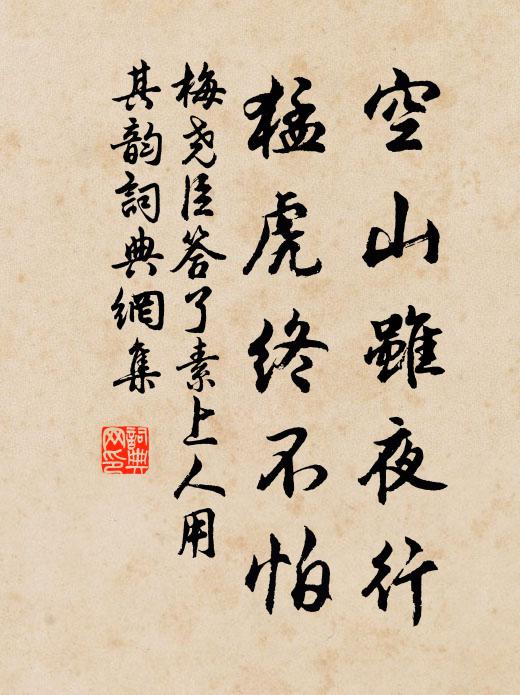 空山雖夜行
猛虎終不怕
梅尧臣答了素上人用
其韵詞典網集
詞典
网印